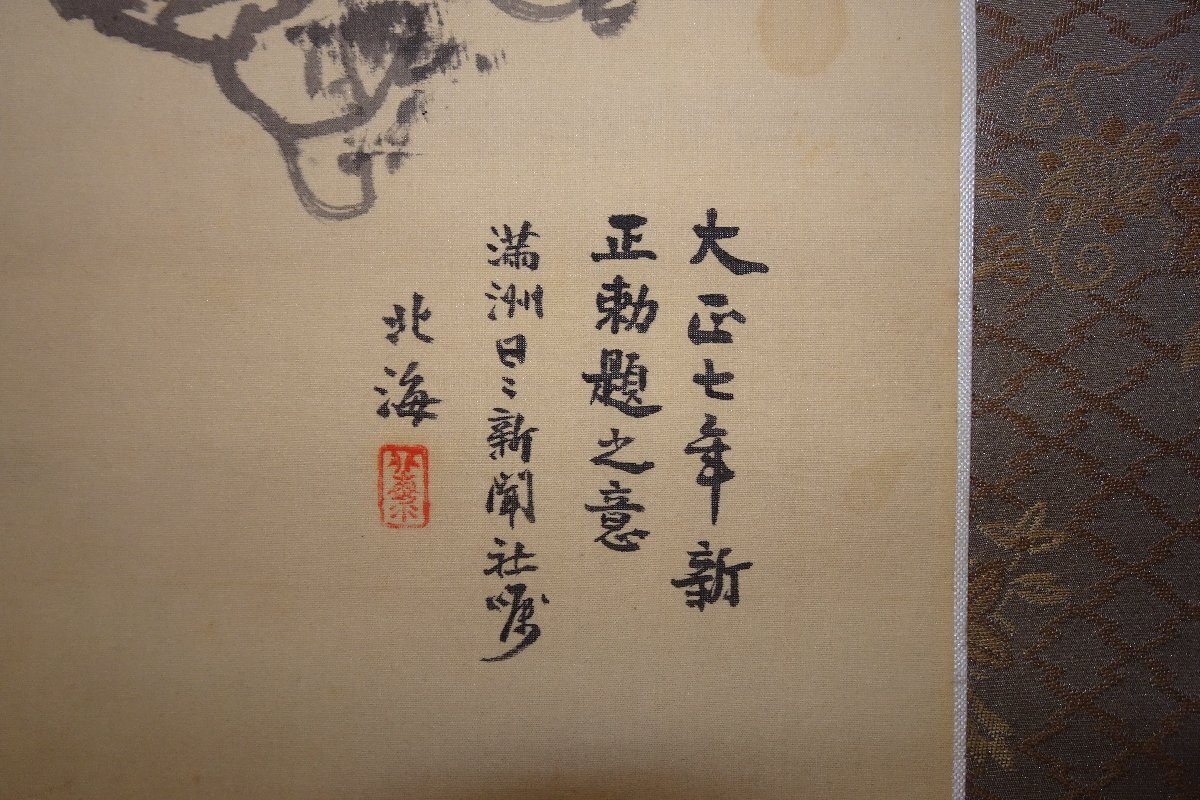 大正七年新
正勅題之意
満洲日々新聞社嘱
北海